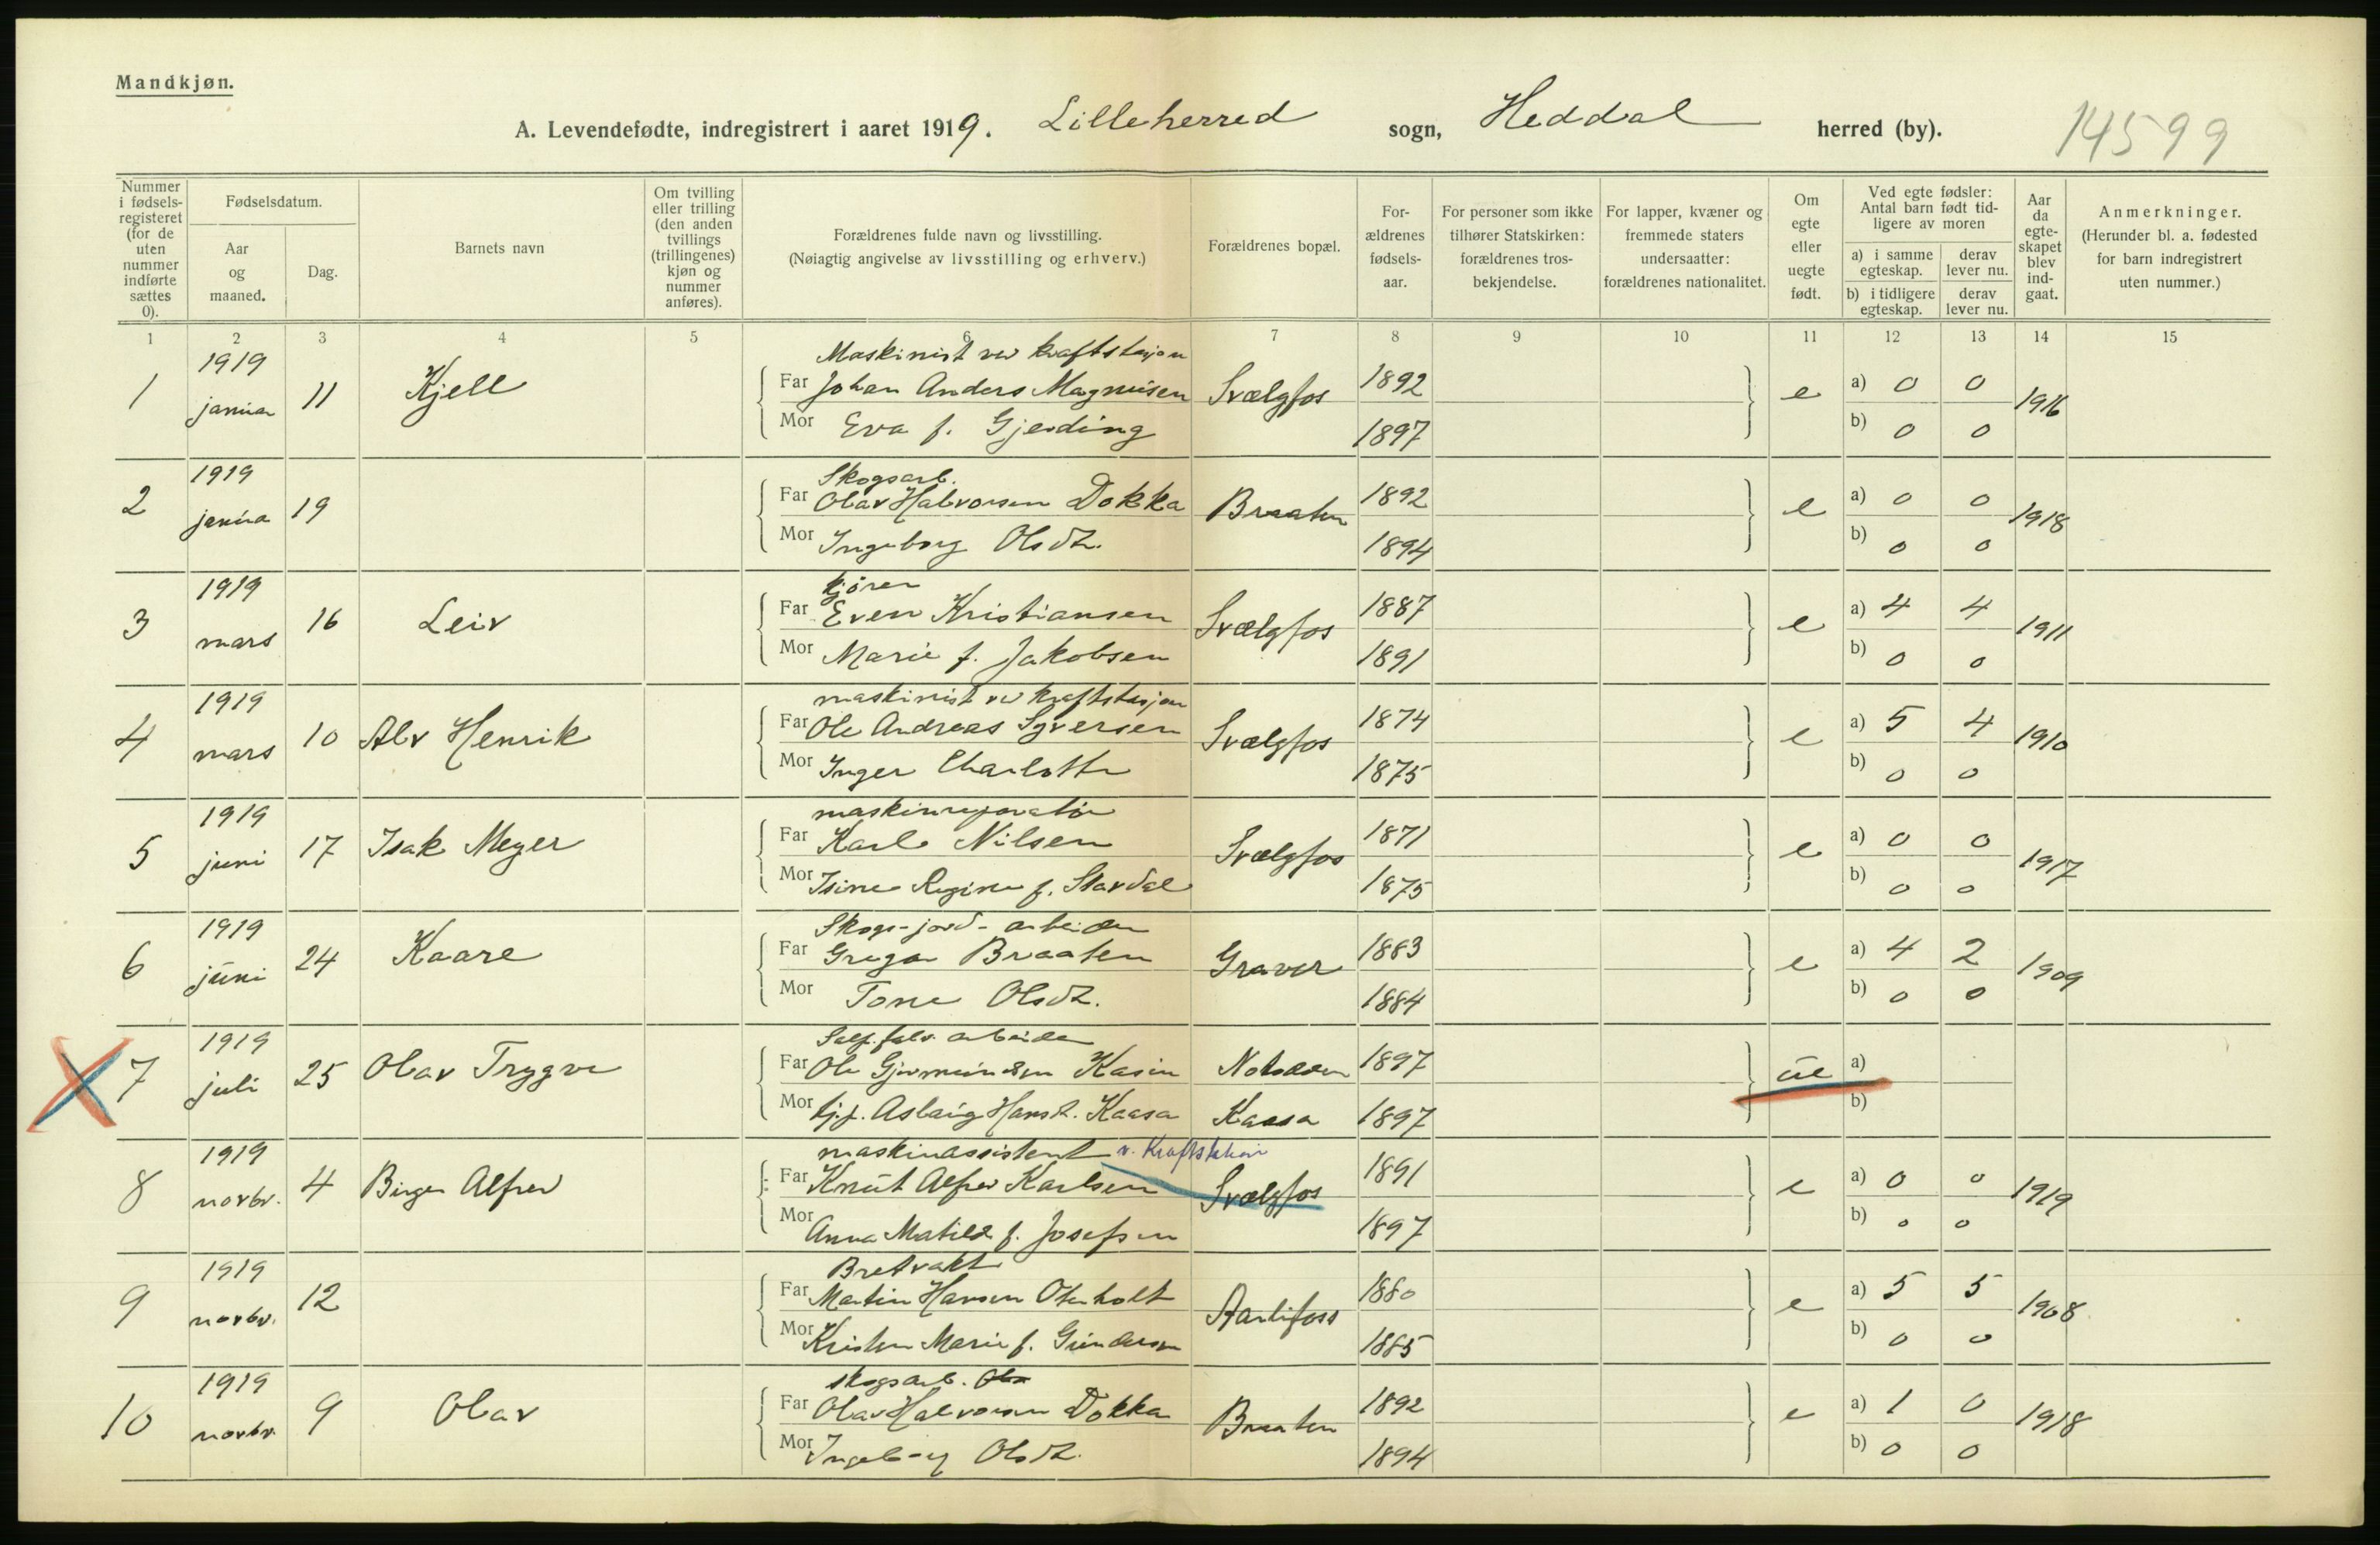 Mandkjøn.
A. Levendefødte, indregistrert i aaret 1919. Lilleherred sogn, Heddal herred (by). 14599
Nummer i fødsels-registeret (for de uten nummer indførte sættes 0).
Fødselsdatum.
Aar og maaned.
Dag.
Barnets navn
Om tvilling eller trilling (den anden tvillings (trillingenes) kjøn og nummer anføres).
Forældrenes fulde navn og livsstilling.
(Nøiagtig angivelse av livsstilling og erhverv.)
Forældrenes bopæl.
For-ældrenes fødsels-aar.
For personer som ikke tilhører Statskirken: forældrenes tros-bekjendelse.
For lapper, kvæner og fremmede staters undersaatter: forældrenes nationalitet.
Om egte eller uegte født.
Ved egte fødsler: Antal barn født tid-ligere av moren
a) i samme egteskap.
derav lever nu.
b) i tidligere egteskap.
derav lever nu.
Aar da egte-skapet blev ind-gaat.
Anmerkninger.
(Herunder bl. a. fødested for barn indregistrert uten nummer.)
1 2 3 4 5 6 7 8 9 10 11 12 13 14 15
1919 Maskinist ved kraftstasjon
1 januar 11 Kjell Far Johan Anders Magnusen Svælgfos 1892 e a) 0 0 1916
Mor Eva f. Gjerding 1897 b) 0 0
1919 Skogsarb.
2 janua 19 Far Olav Halvorsen Dokka Braaten 1892 e a) 0 0 1918
Mor Ingeborg Olsdt. 1894 b) 0 0
1919 kjører
3 mars 16 Leiv Far Even Kristiansen Svælgfos 1887 e a) 4 4 1911
Mor Marie f. Jakobsen 1891 b) 0 0
1919 maskinist ved kraftstasjon
4 mars 10 Alv Henrik Far Ole Andreas Syversen Svælgfos 1874 e a) 5 4 1910
Mor Inger Charlotte 1875 b) 0 0
1919 maskinreparatør
5 juni 17 Isak Meyer Far Karl Nilsen Svælgfos 1871 e a) 0 0 1917
Mor Isine Regine f. Stavdal 1875 b) 0 0
1919 Skogs-jord-arbeider
6 juni 24 Kaare Far Gregar Braaten Graver 1883 e a) 4 2 1909
Mor Tone Olsdt. 1884 b) 0 0
1919 arbeider
7 juli 25 Olav Trygve Far Ole Kasin Notodden 1897 ue a)
Mor Aslaug Hansd. Kaasa Kaasa 1897 b)
1919 maskinassistent v. Kraftstation
8 novbr. 4 Birger Alfred Far Knut Alfred Karlsen Svælgfos 1891 e a) 0 0 1919
Mor Anna Matilde f. Josefsen 1897 b) 0 0
1919
9 novbr. 12 Far Martin Hansen Oterholt Aarlifoss 1880 e a) 5 5 1908
Mor Kristine Marie f. Gundersen 1885 b) 0 0
1919 skogsarb. Ola
10 novbr. 9 Olav Far Olav Halvorsen Dokka Braaten 1892 e a) 1 0 1918
Mor Ingeborg Olsdt. 1894 b) 0 0